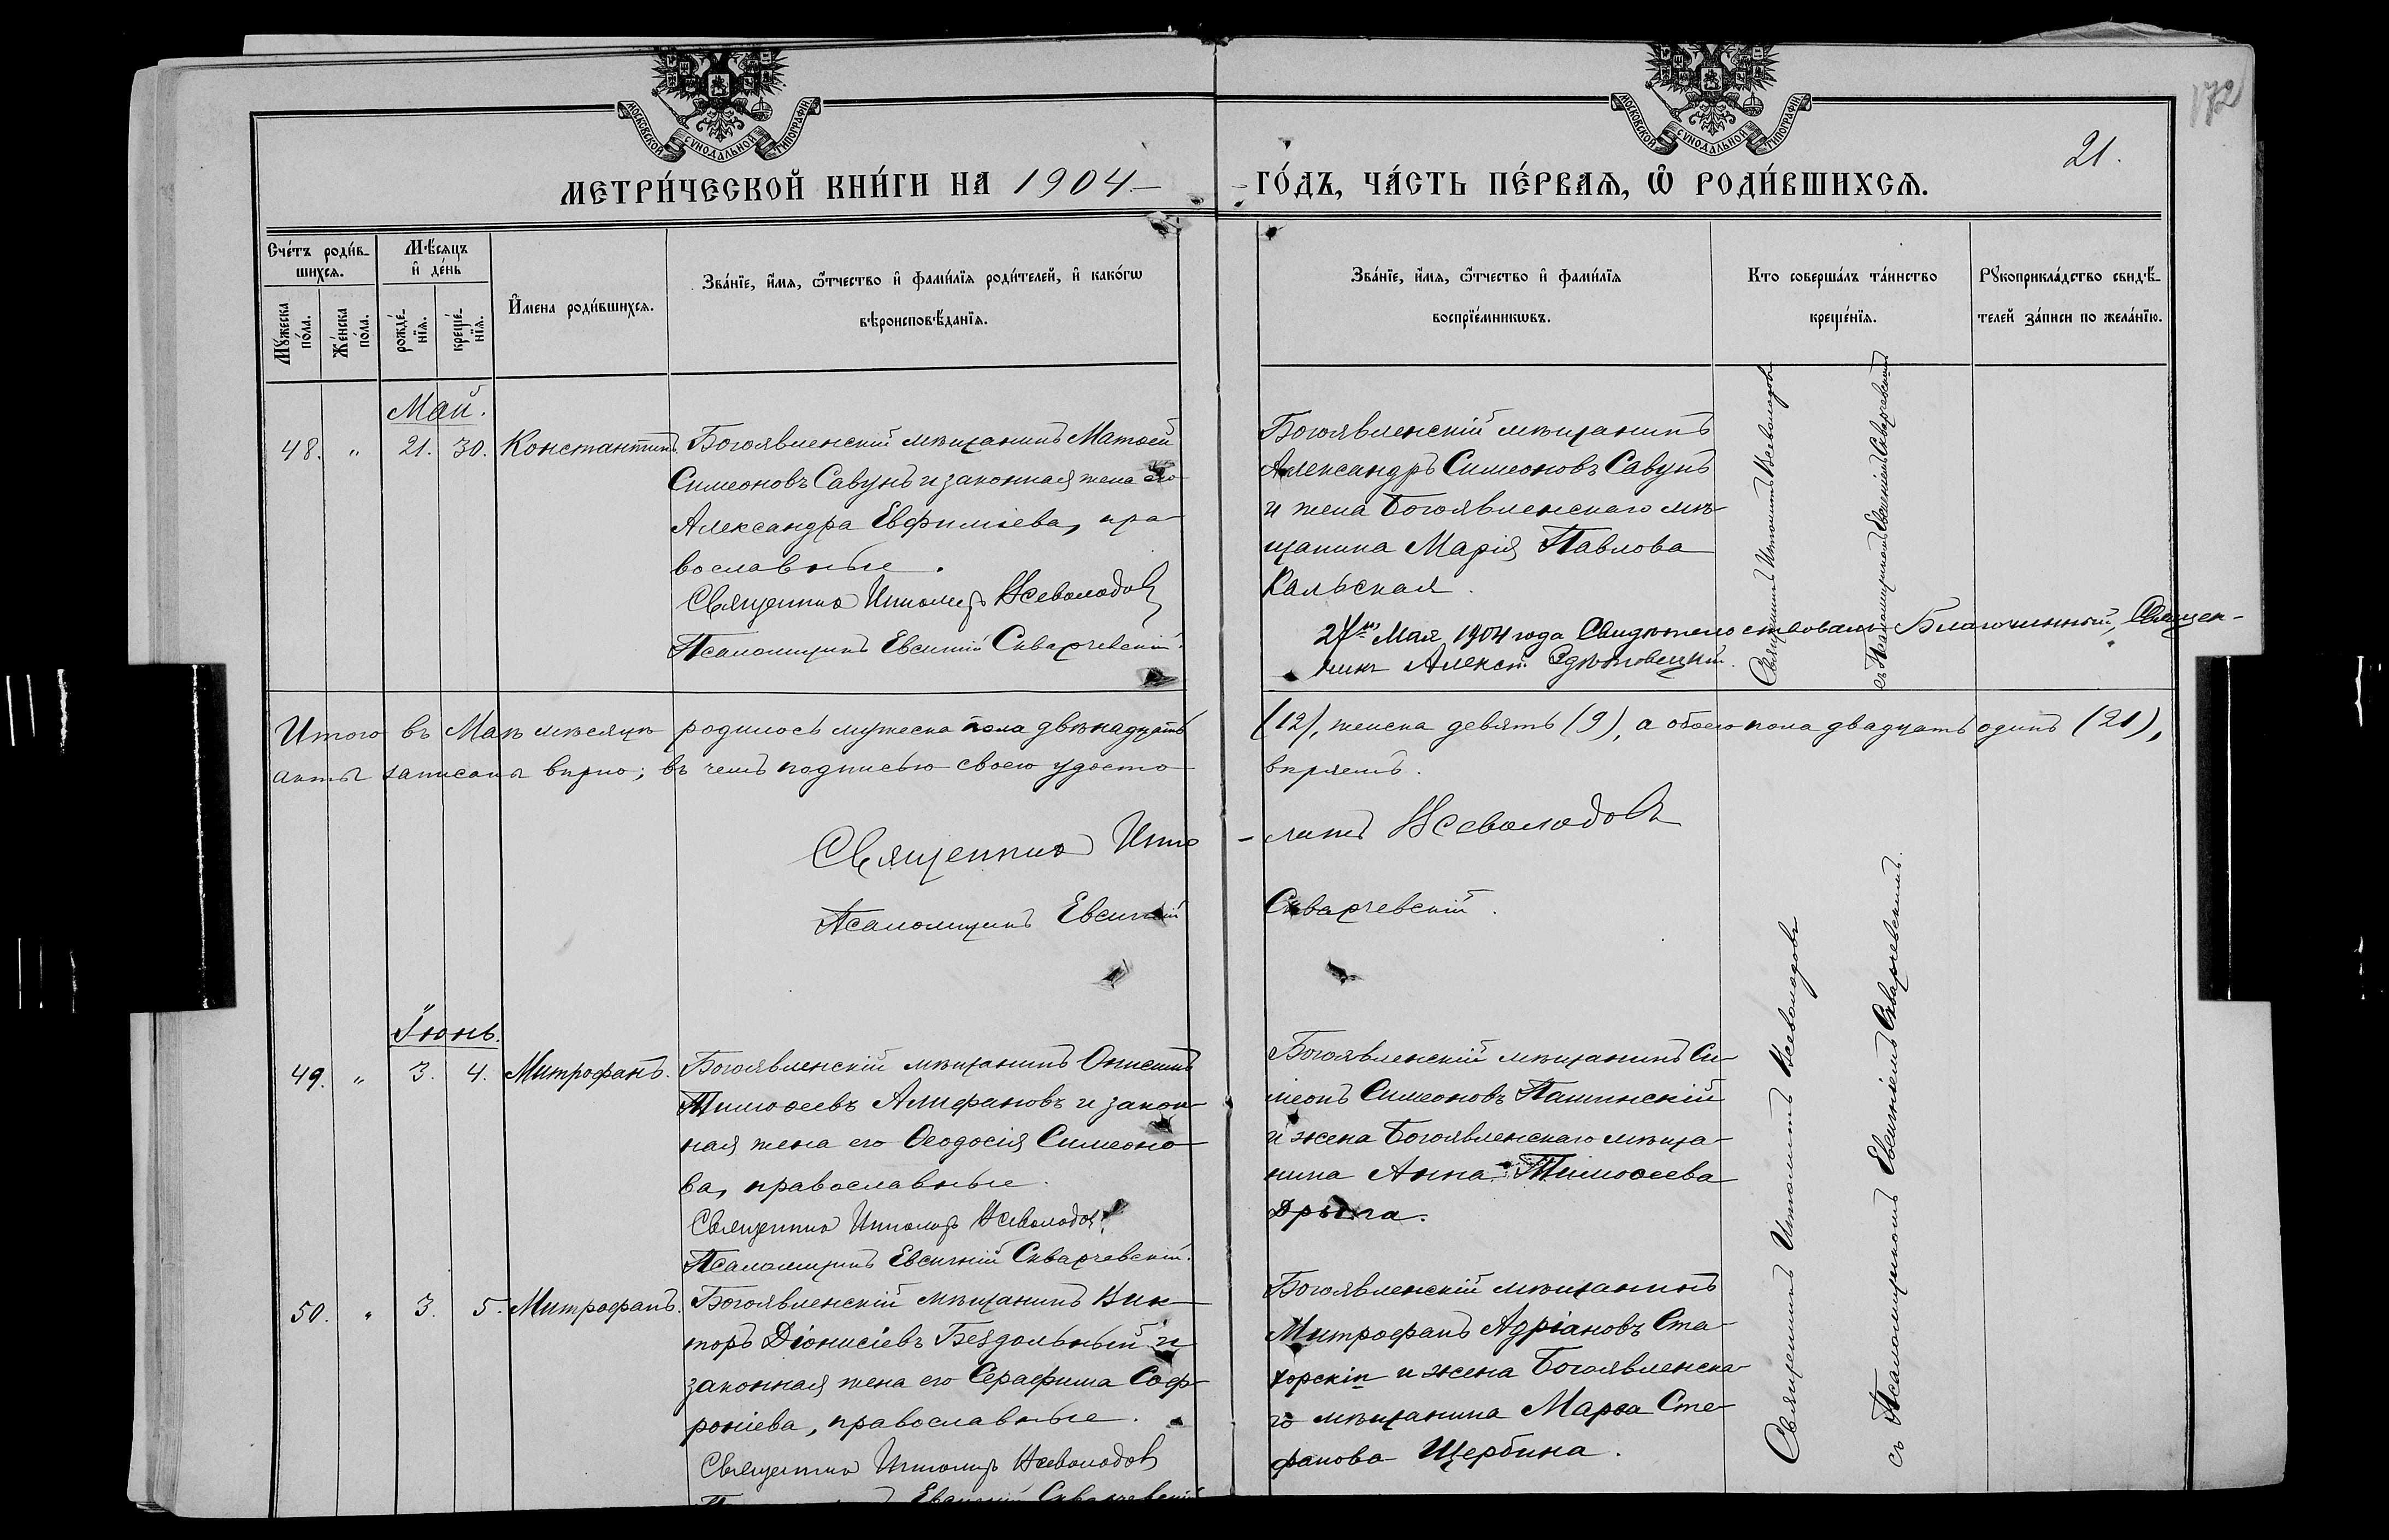 172
21.
МОСКОВСКОЙ СѴНОДАЛЬНОЙ ТИПОГРАФІИ
МОСКОВСКОЙ СѴНОДАЛЬНОЙ ТИПОГРАФІИ
МЕТРИ́ЧЕСКОЙ КНИ́ГИ НА 1904
ГО́ДЪ, ЧА́СТЬ ПЕ́РВАѦ, Ѽ РОДИ́ВШИХСѦ.
Сче́тъ роди́в-
шихсѧ.
Мꙋ́жеска по́ла.
Же́нска по́ла.
Мѣ́сяцъ
и҆ де́нь
рожде́-
нїѧ.
креще́-
нїѧ.
И҆мена роди́вшихсѧ.
Зва́нїе, и҆́мѧ, ѻ҆́тчество и҆ фами́лїѧ роди́телей, и҆ како́гѡ
вѣроисповѣ́данїѧ.
Зва́нїе, и҆́мѧ, ѻ҆́тчество и҆ фами́лїѧ
воспрїе́мникѡвъ.
Кто соверша́лъ та́инство
креще́нїѧ.
Рꙋкоприкла́дство свидѣ́-
телей за́писи по жела́нїю.
Май.
48. " 21. 30. Константинъ.
Богоявленскій мѣщанинъ Матѳей
Симеоновъ Савунъ и законная жена его
Александра Евфиміева, пра-
вославные.
Священникъ Ипполитъ Всеволодовъ
Псаломщикъ Евсигній Скварчевскій.
Богоявленскій мѣщанинъ
Александръ Симеоновъ Савунъ
и жена Богоявленскаго мѣ-
щанина Марія Павлова
Кальская.
Священникъ Ипполитъ Всеволодовъ
съ Псаломщикомъ Евсигніемъ Скварчевскимъ
Мая 1904 года Свидѣтельствовалъ Благочинный, Священ-
никъ
Итого въ Маѣ мѣсяцѣ родилось мужеска пола двѣнадцать (12), женска девять (9), а обоего пола двадцать одинъ (21),
акты записаны вѣрно; въ чемъ подписью своею удосто
вѣряемъ.
Священникъ Иппо-литъ Всеволодовъ
Псаломщикъ Евсигній Скварчевскій.
Іюнь.
49. " 3. 4. Митрофанъ.
Богоявленскій мѣщанинъ Онисимъ
Тимоѳеевъ Алифановъ и закон-
ная жена его Ѳеодосія Симеоно-
ва, православные.
Священникъ Ипполитъ Всеволодовъ
Псаломщикъ Евсигній Скварчевскій.
Богоявленскій мѣщанинъ Си-
меонъ Симеоновъ Пашинскій
и жена Богоявленскаго мѣща-
нина Анна Тимоѳеева
Дрыга.
50. " 3. 5. Митрофанъ.
Богоявленскій мѣщанинъ Вик-
торъ Діонисіевъ Бездольный и
законная жена его Серафима Соф-
роніева, православные.
Священникъ Ипполитъ Всеволодовъ
Евсигній Скварчевскій
Богоявленскій мѣщанинъ
Митрофанъ Адріановъ Ста-
хорскій и жена Богоявленска-
го мѣщанина Марѳа Сте-
фанова Щербина.
Священникъ Ипполитъ Всеволодовъ
съ Псаломщикомъ Евсигніемъ Скварчевскимъ.